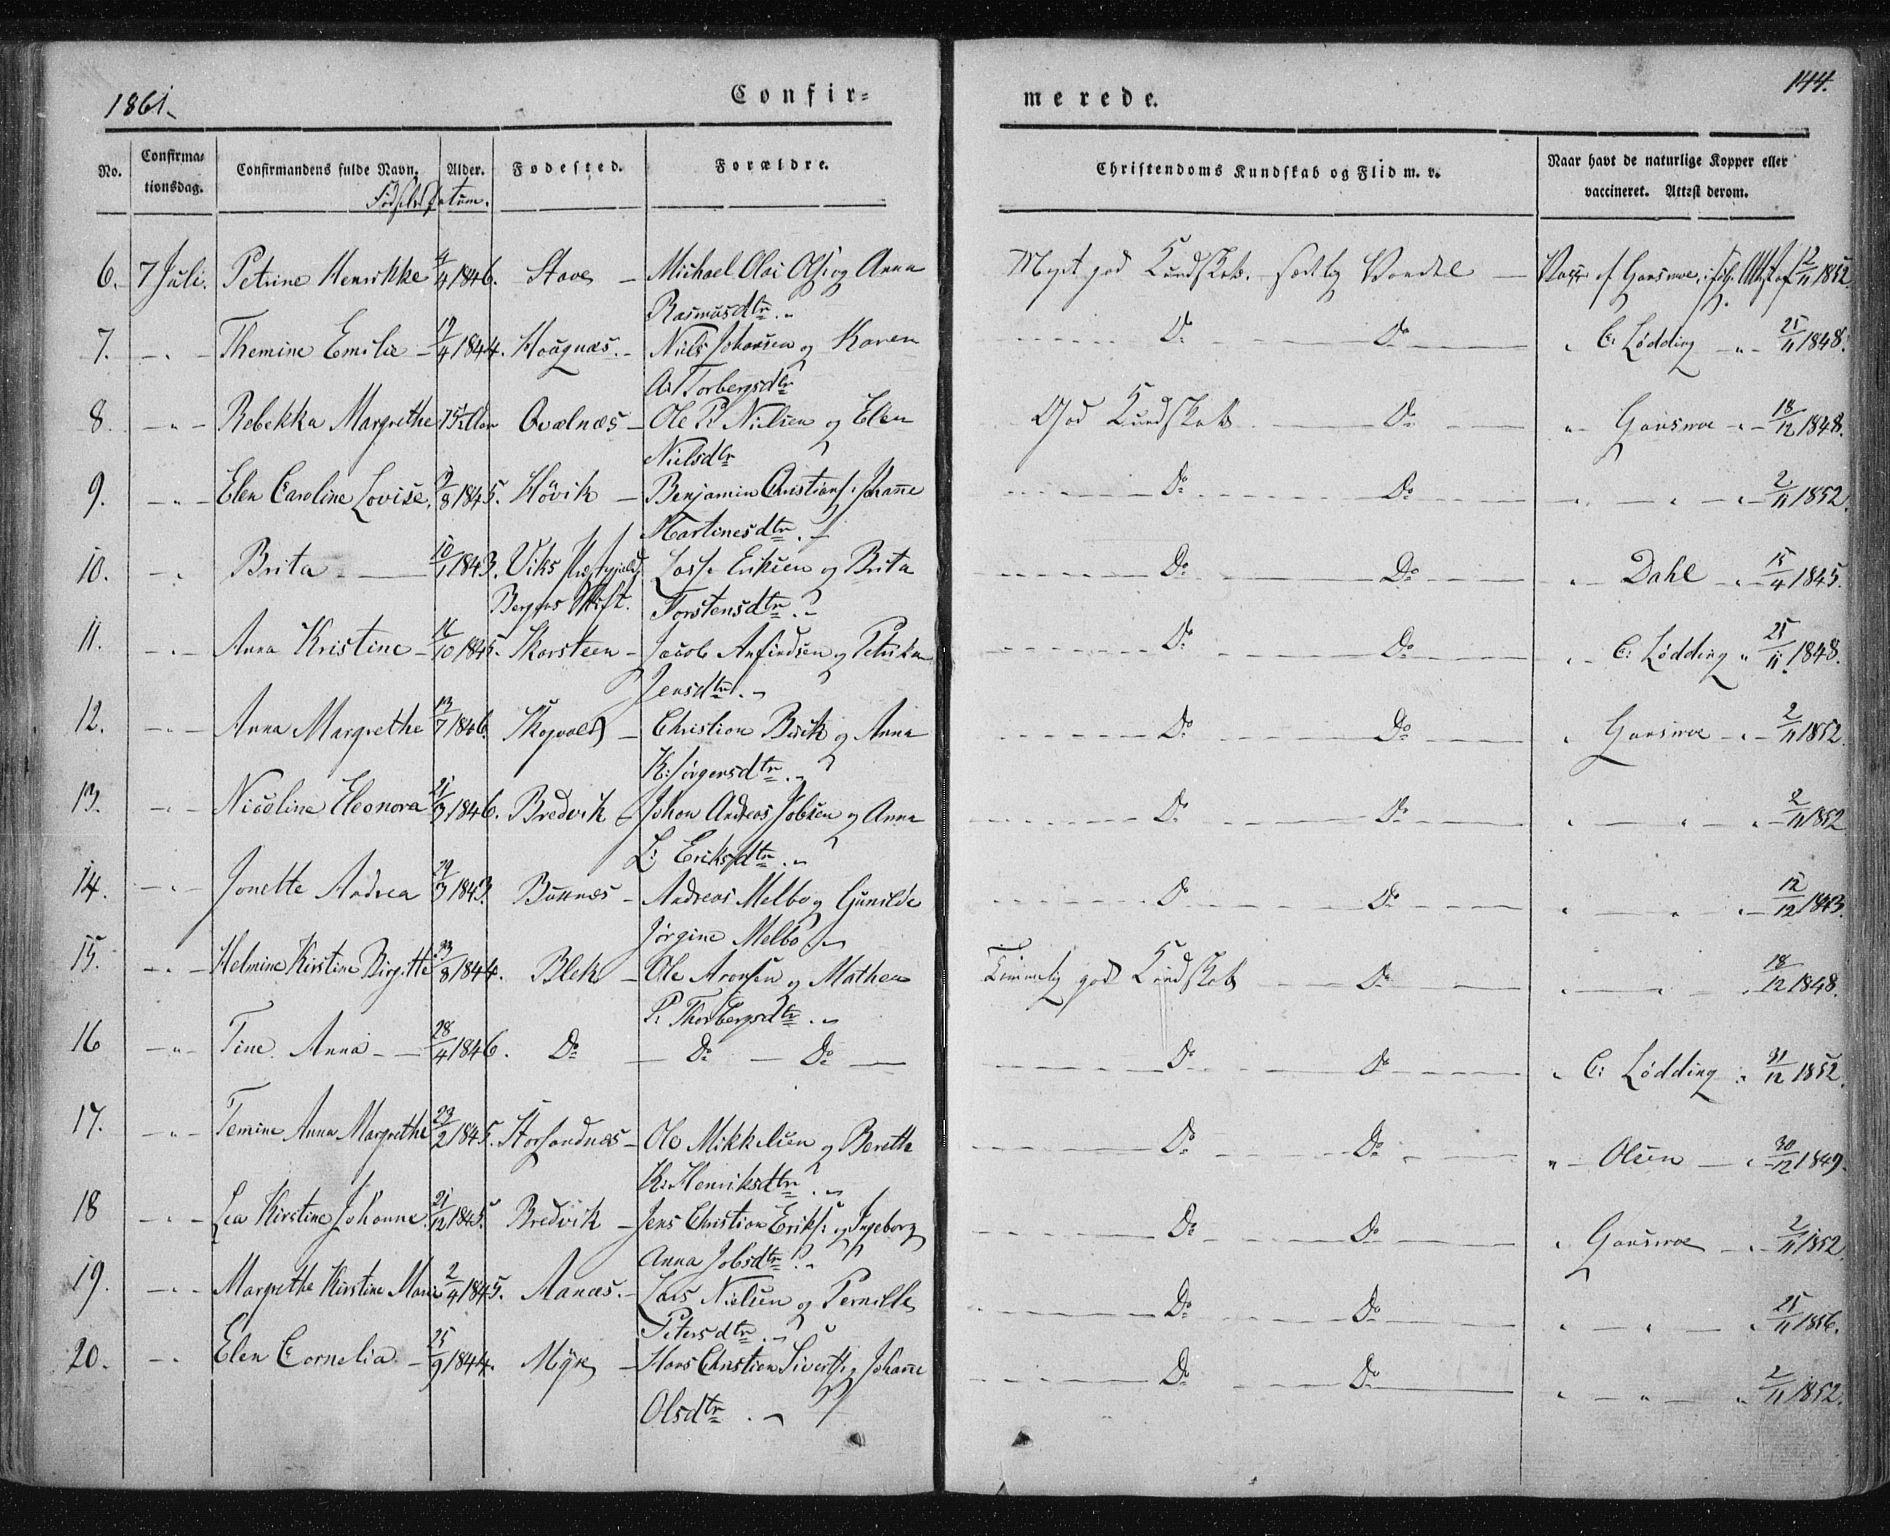 1861.
Confir=
merede.
144.
No.
Confirma=
tionsdag.
Confirmandens fulde Navn.
Alder.
Fødested.
Forældre.
Christendoms Kundskab og Flid m. v.
Naar havt de naturlige Kopper eller
vaccineret. Attest derom.
Fødsels Datum.
6. 7 Juli. Petrine Henrikke 4/4 1846. Stave — Michael Olai Ols: og Anna Meget god Kundskab. sædelig Vandel — 12/11 1852.
Rasmusdtr.
7. — " — Themine Emilie — 19/4 1844. Haagnæs. — Niels Johansen og Karen Do Do " C: Lødding — " — 25/11 1848.
A: Torbergsdtr
8. — " — Rebekka Margrethe Qvalnæs — Ole P. Nielsen og Elen God Kundskab Do " Gausnæs 18/12 1848.
Nielsdtr
9. — " — Elen Caroline Lovise. 9/8 1845. Høvik — Benjamin Christians: Johanne Do Do 2/11 1852.
Martinesdtr.
10. — " Brita — 10/1 1843. Viks Præstegjeld Lasse Eriksen og Brita Do Do " Dahl 15/4 1845.
Bergens Stift. Torstensdtr.
11. — " — Anna Kristine — 16/10 1845. Skarsteen — Jacob Anfindsen og Petrikа Do Do " C: Lødding " 25/11 1848.
Jensdtr.
12. — " — Anna Margrethe 13/7 1846. Skogvold — Christian Buck og Anna Do Do " 2/11 1852.
K: Jørgensdtr.
13. — " — Nicoline Eleonora 21/3 1846. Bredvik Johan Andreas Jobsen og Anna Do Do 2/11 1852
L: Eriksdtr.
14. — " — Jonette Andrea 29/3 1843 Buknæs — Andreas Melbo og Gunilde Do Do 12/12 1843.
Jørgine Melbo
15. — " — Helmine Kirstine Birgitte 23/8 1844. Blek — Ole Aronsen og Mathea Temmelig god Kundskab Do 18/12 1848.
P: Thorbergsdtr.
16 — " — Tine Anna — 28/4 1846. Do — Do — Do — Do Do " C: Lødding " 31/12 1852.
17. — " — Temine Anna Margrethe 23/2 1845. Storsandnæs — Ole Mikkelsen og Berethe Do Do " Olsen — " 30/12 1849.
K: Henriksdtr.
18 — " — Lea Kirstine Johanne. 21/12 1845. Bredvik — Jens Christian Eriks: og Ingeborg Do Do " 2/11 1852.
Anna Jobsdtr.
19. — " — Margrethe Kirstine Marie 2/4 1845. Aanæs. — Lars Nielsen og Pernille Do Do 25/11 1856.
Petersdtr.
20. — " Elen Cornelia — 25/9 1844. Myre — Hans Christian Siverts: og Johanne Do Do 2/11 1852.
Olsdtr.